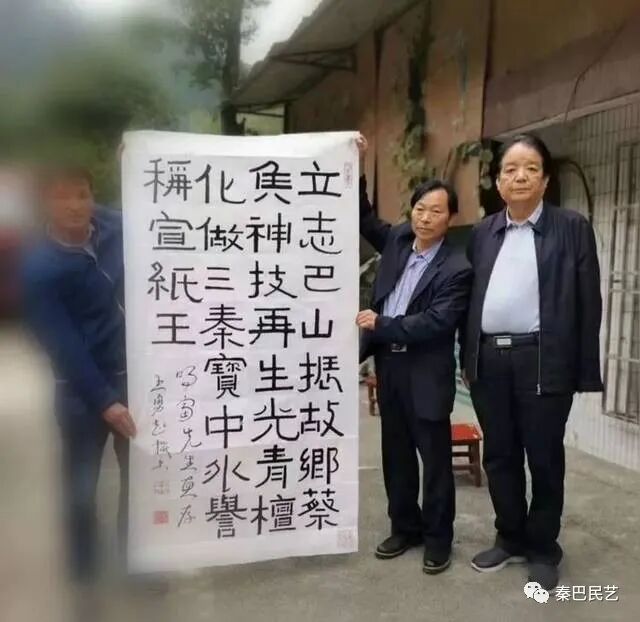 立志巴山振故鄉蔡
矦神技再生光青檀
化做三秦寶中外譽
稱宣紙王
明富先生惠存
王勇超
秦巴民艺